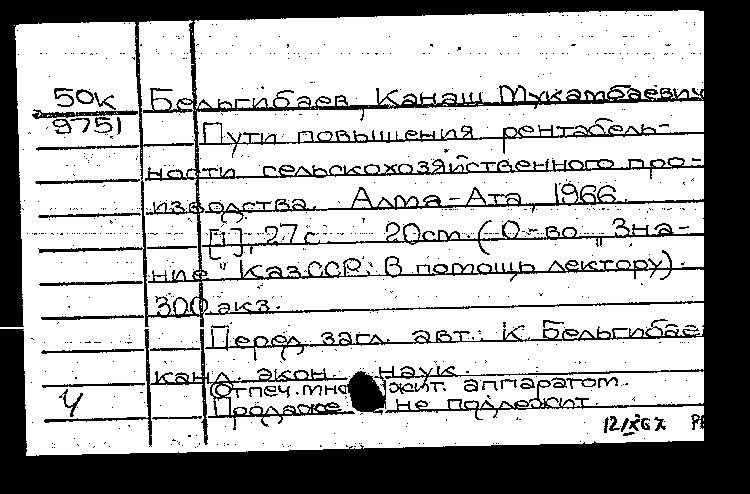 50к Бельгибаев, Канаш Мукамбаевич
9751 Пути повышения рентабель-
ности сельскохозяйственного про-
изводства. Алма-Ата, 1966.
[1], 27 с. 20 cm. (О-во „Зна-
ние" Каз.ССР. В помощь лектору).
300 экз.
Перед загл. авт.: К. Бельгибаев
канд. экон. наук.
Отпеч. множит. аппаратом.
Ч Продаже не подлежит.